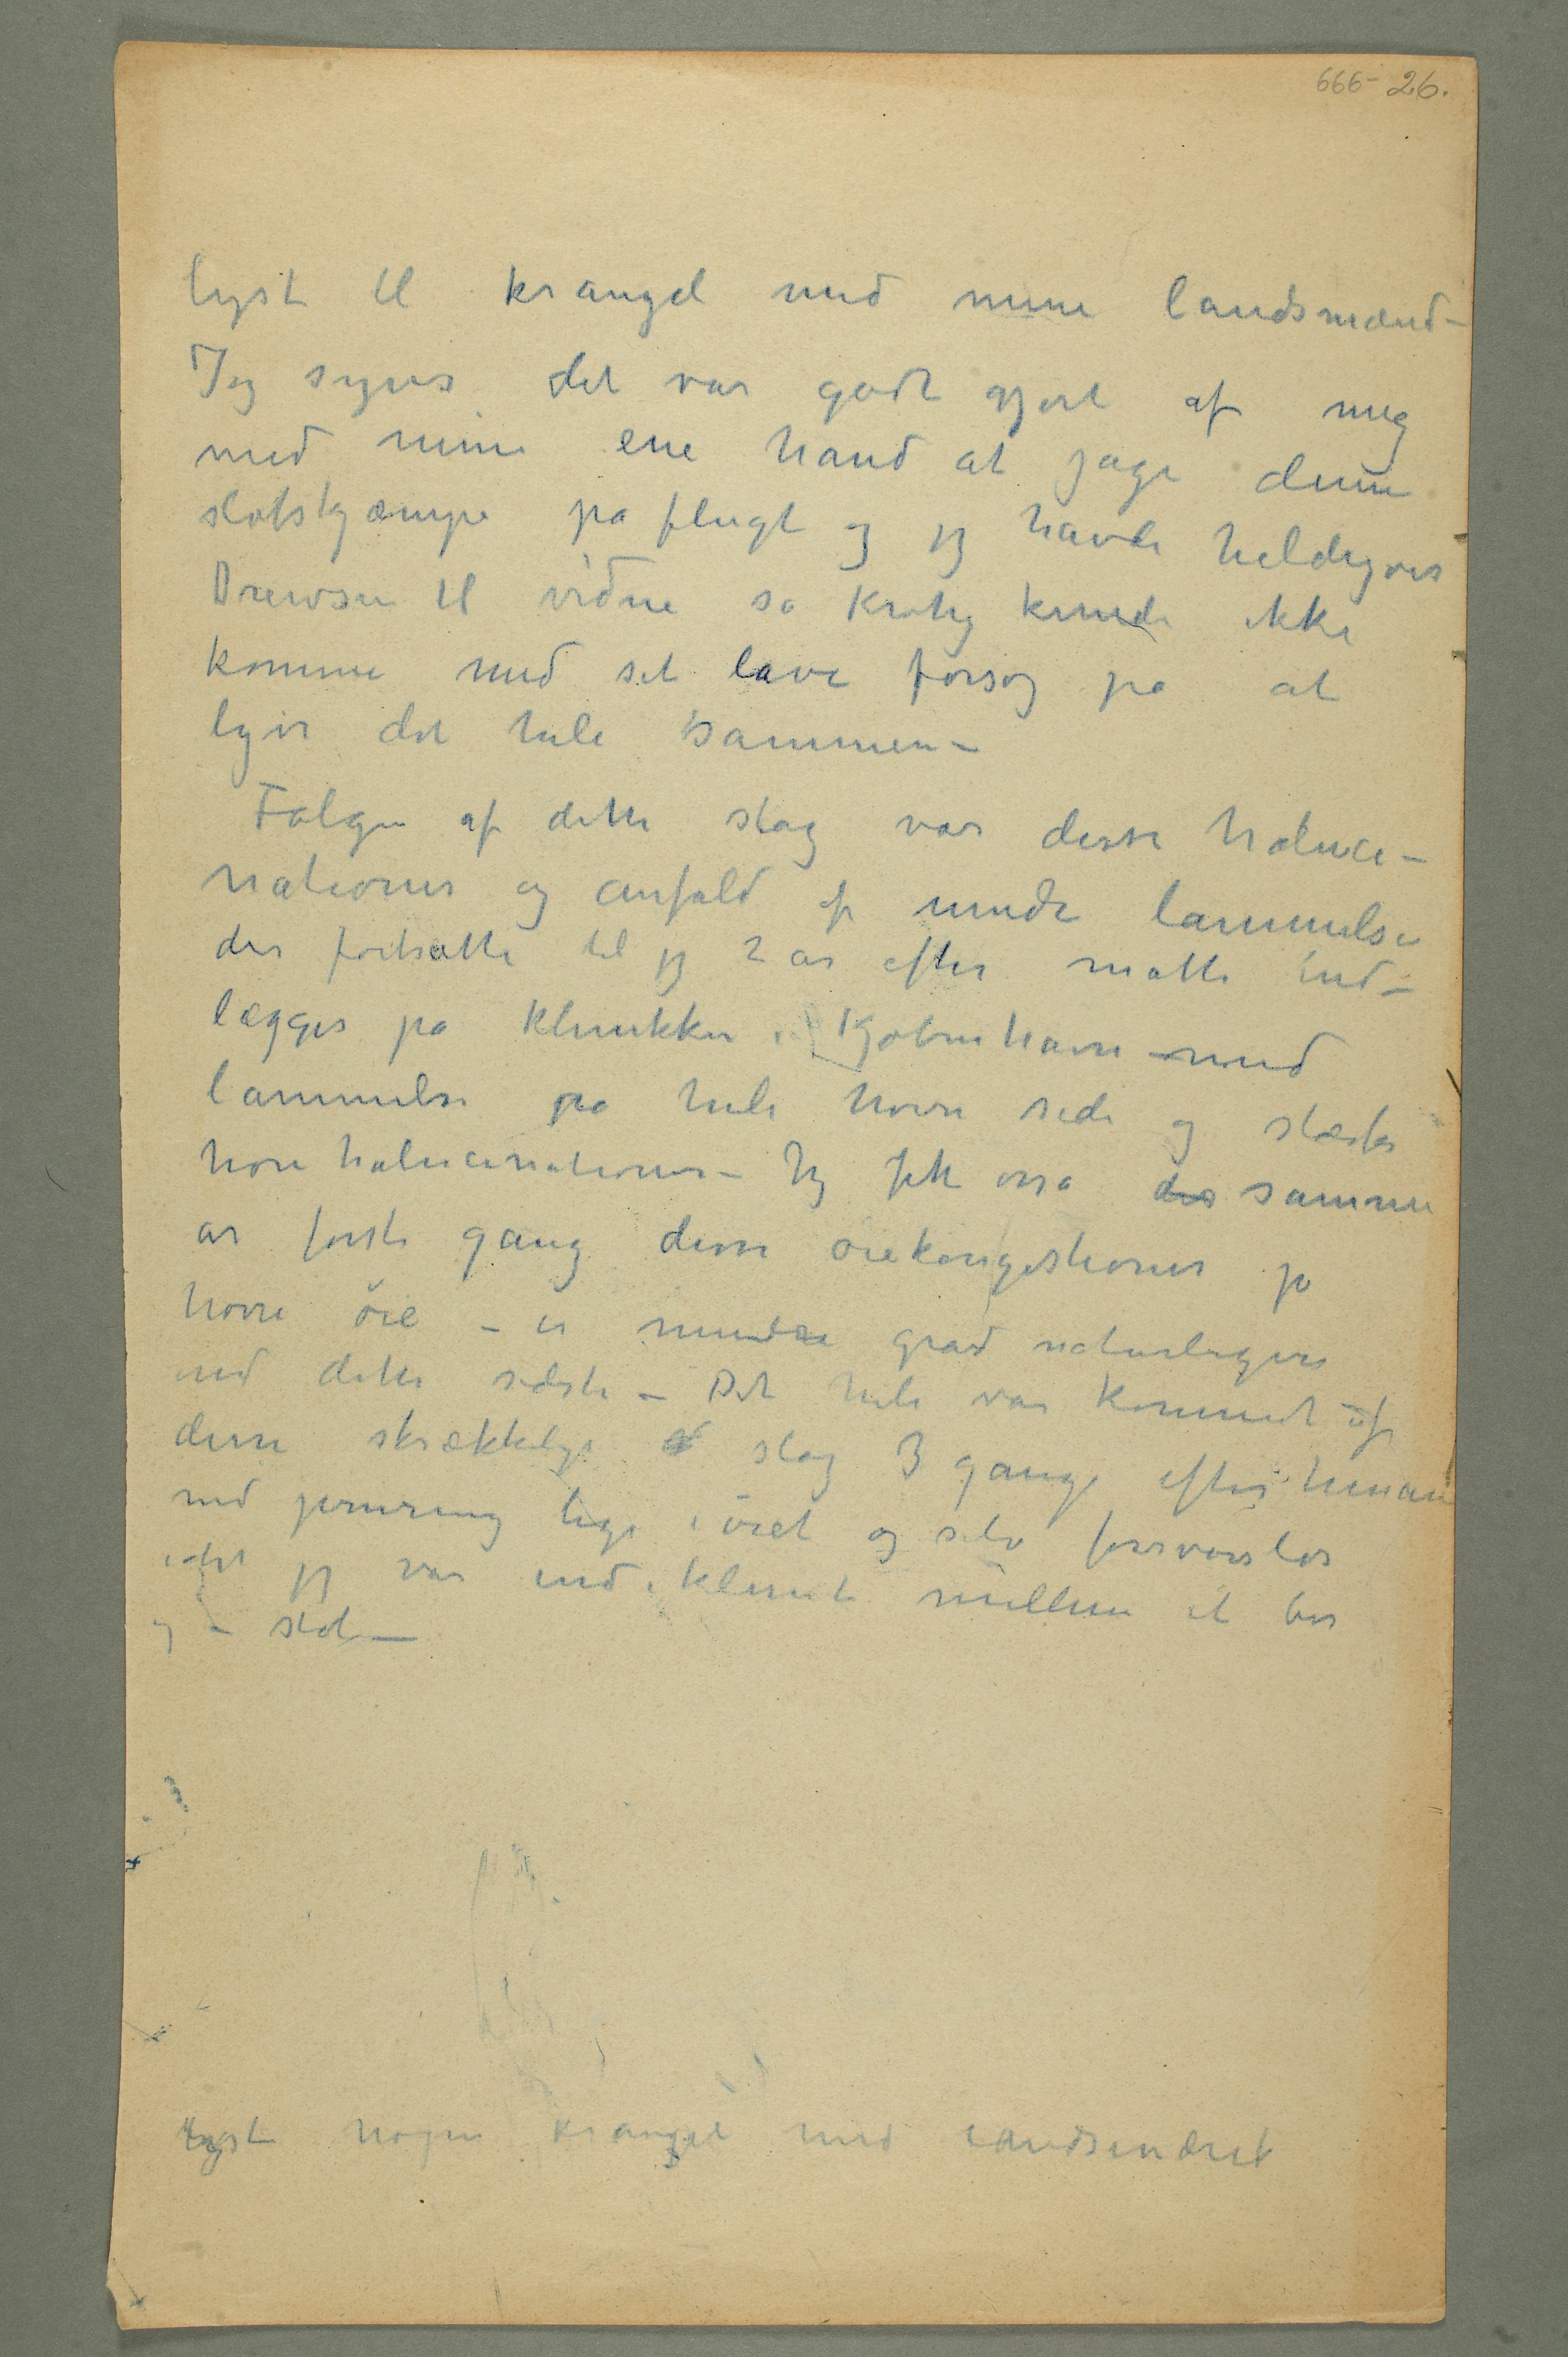 666-26.
lyst til krangel med mine landsmænd –
Jeg synes det var godt gjort af mig
med min ene hand at jage denne
slotskjæmpe pa flugt og jeg havde heldigvis
Drewsen til vidne så Krohg kunde ikke
komme med sit lave forsøg på at
lyve det hele sammen –
Følgen af dette slag var disse haluci-
nationer og anfald af mindre lammelser
der fortsatte til jeg 2 år efter måtte ind-
lægges på Klinikken i Kjøbenhavn – med
lammelse på hele høire side og stærke
hørehalucinationer – Jeg fik også samme
år første gang disse øiekongestioner på
høire øie – er mindre grad naturligvis
end dette sidste – Det hele var kommet af
disse skrækkelige slag 3 gange efter hinan
med jernring lige i øiet og selv forsvarsløs
idet jeg var indeklemt mellem et bor
og – stol –
lyst nogen krangel med landsmænd